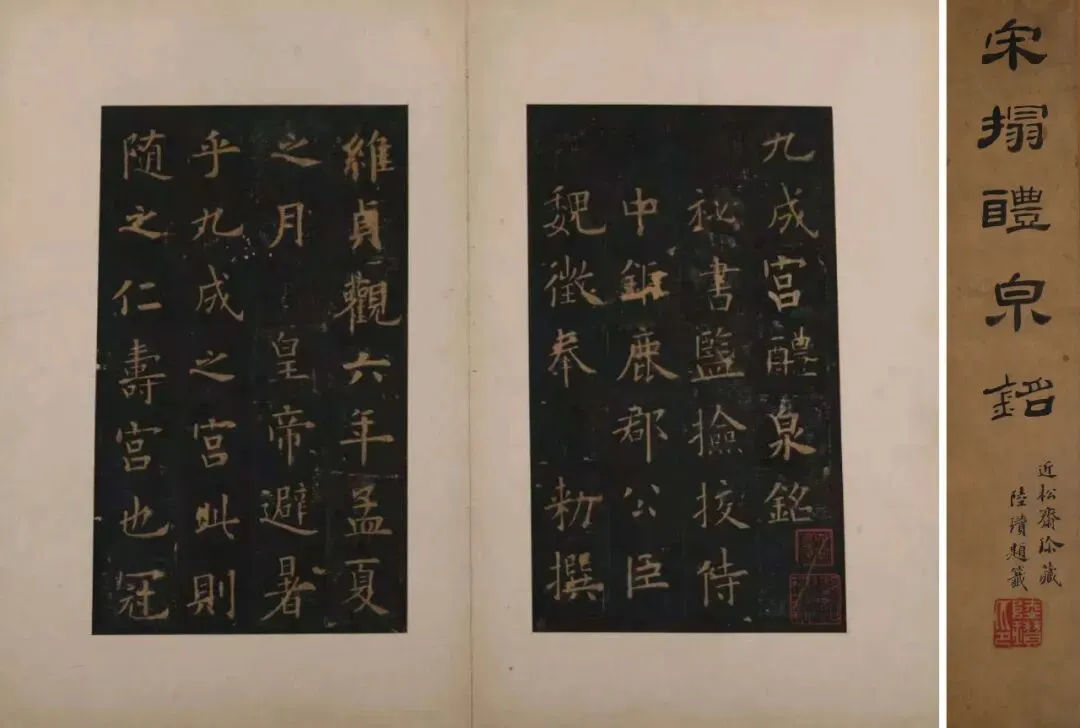 宋搨醴泉銘
近松齋珍藏
陸題籤
九成宮醴泉銘
祕書監撿挍侍
中鉅鹿郡公臣
魏徵奉 勑撰
維貞觀六年孟夏
之月 皇帝避暑
乎九成之宮此則
随之仁壽宮也冠